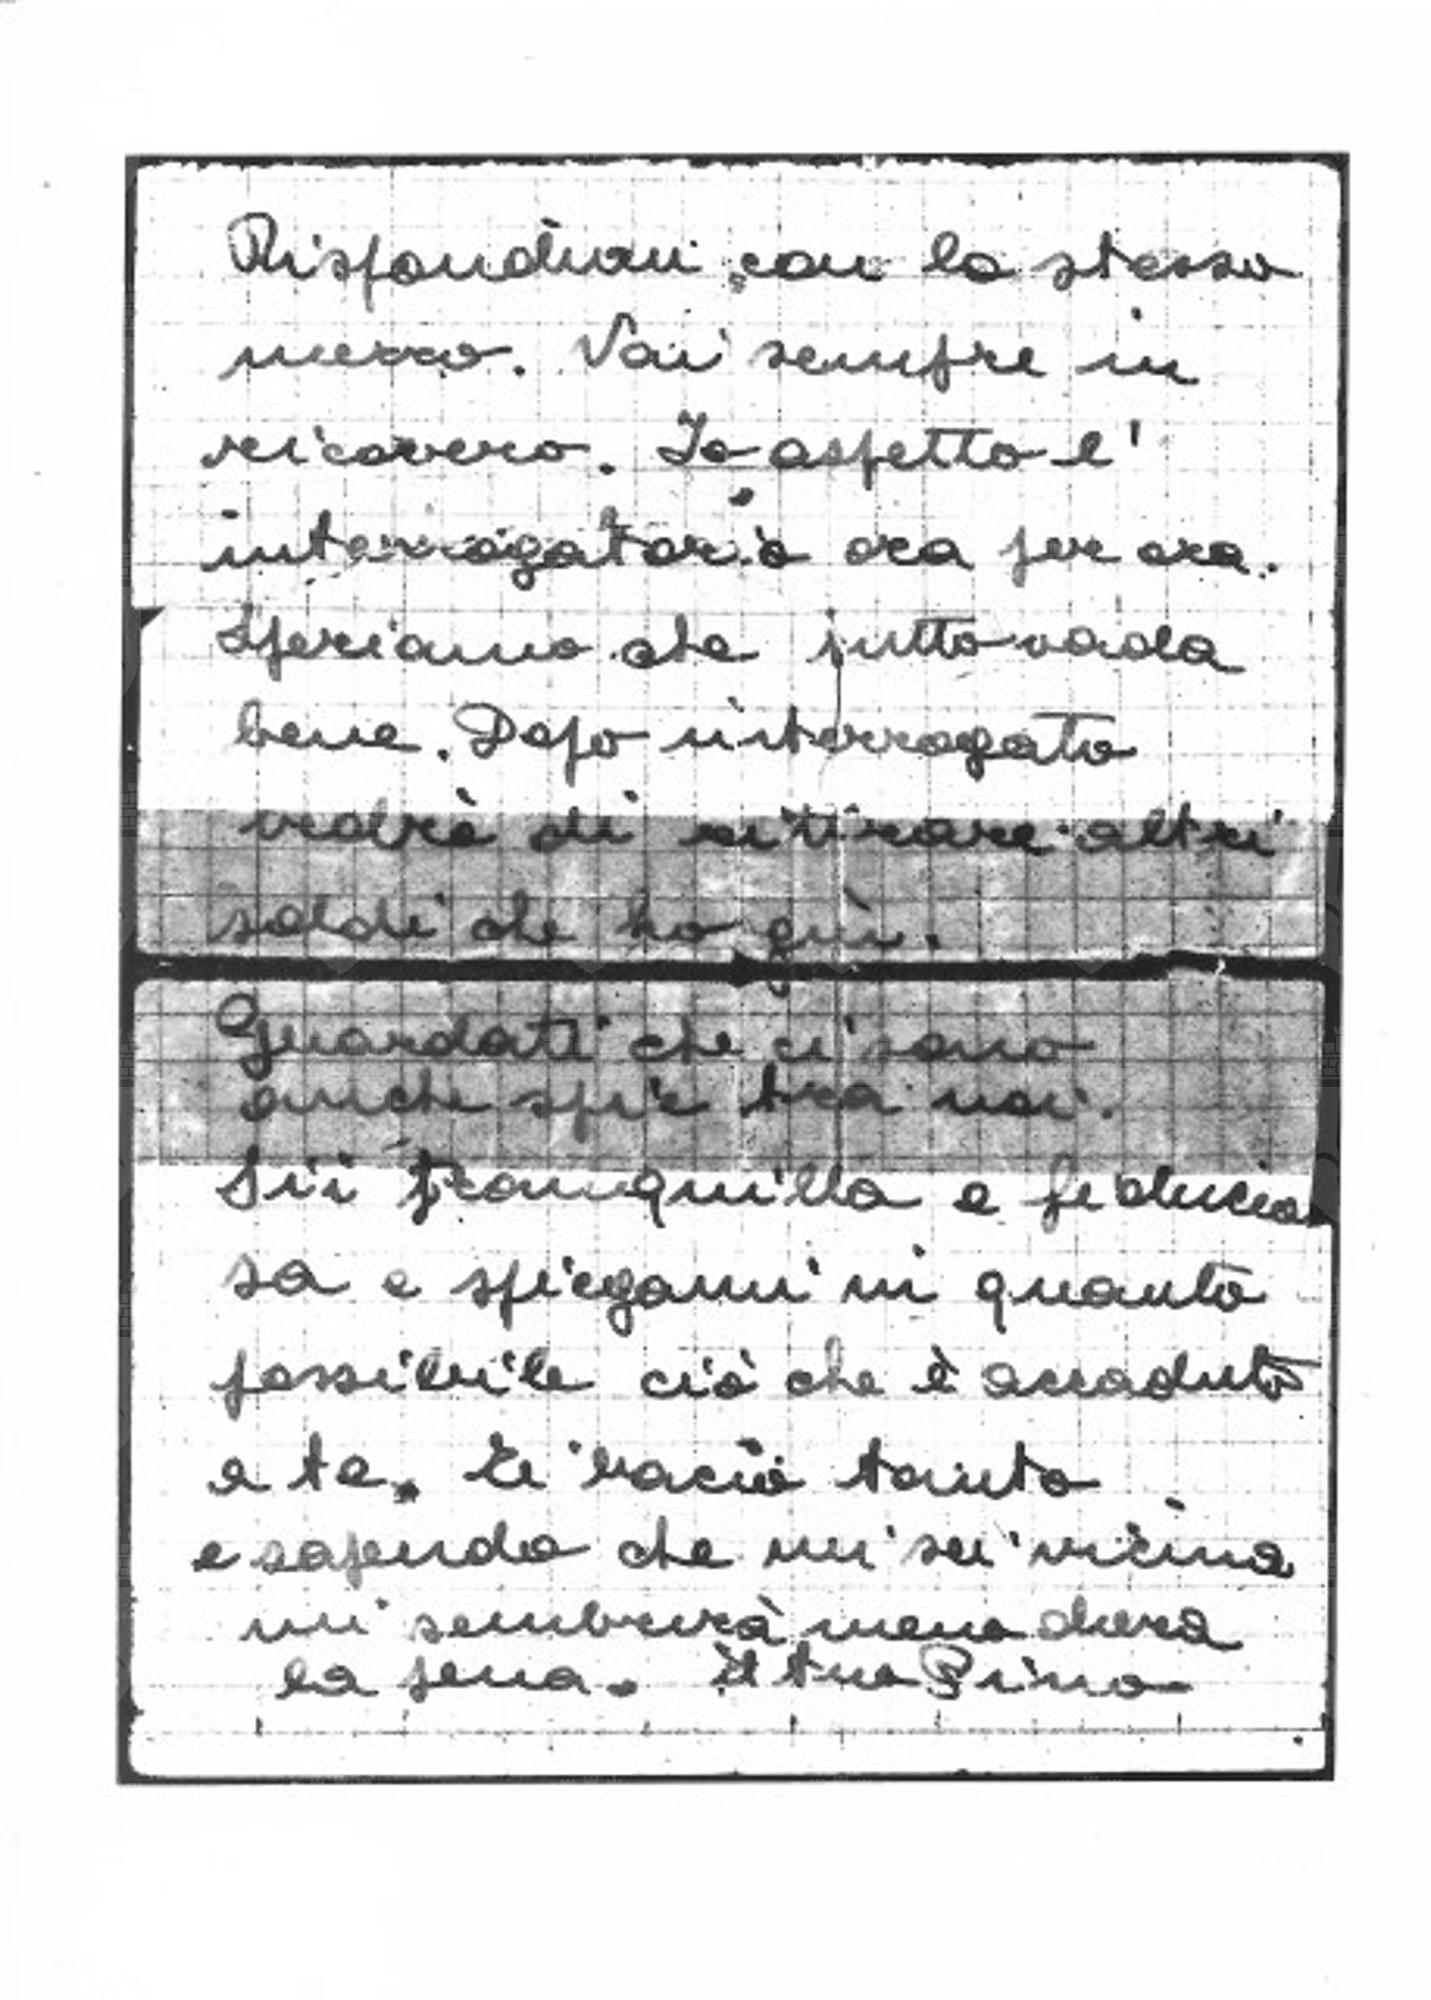 Rispondimi con lo stesso
mezzo. Vai sempre in
ricovero. Io aspetto l'
interrogatorio ora per ora.
Speriamo che tutto vada
bene. Dopo interrogato
vedrò di ritirare altri
soldi che ho qui.
Guardati che ci sono
anche spie tra noi.
Sii tranquilla e fiducio
sa e spiegami in quanto
possibile ciò che è accaduto
a te. Ti bacio tanto
e sapendo che mi sei vicina
mi sembrerà meno dura
la pena. Il tuo Pino